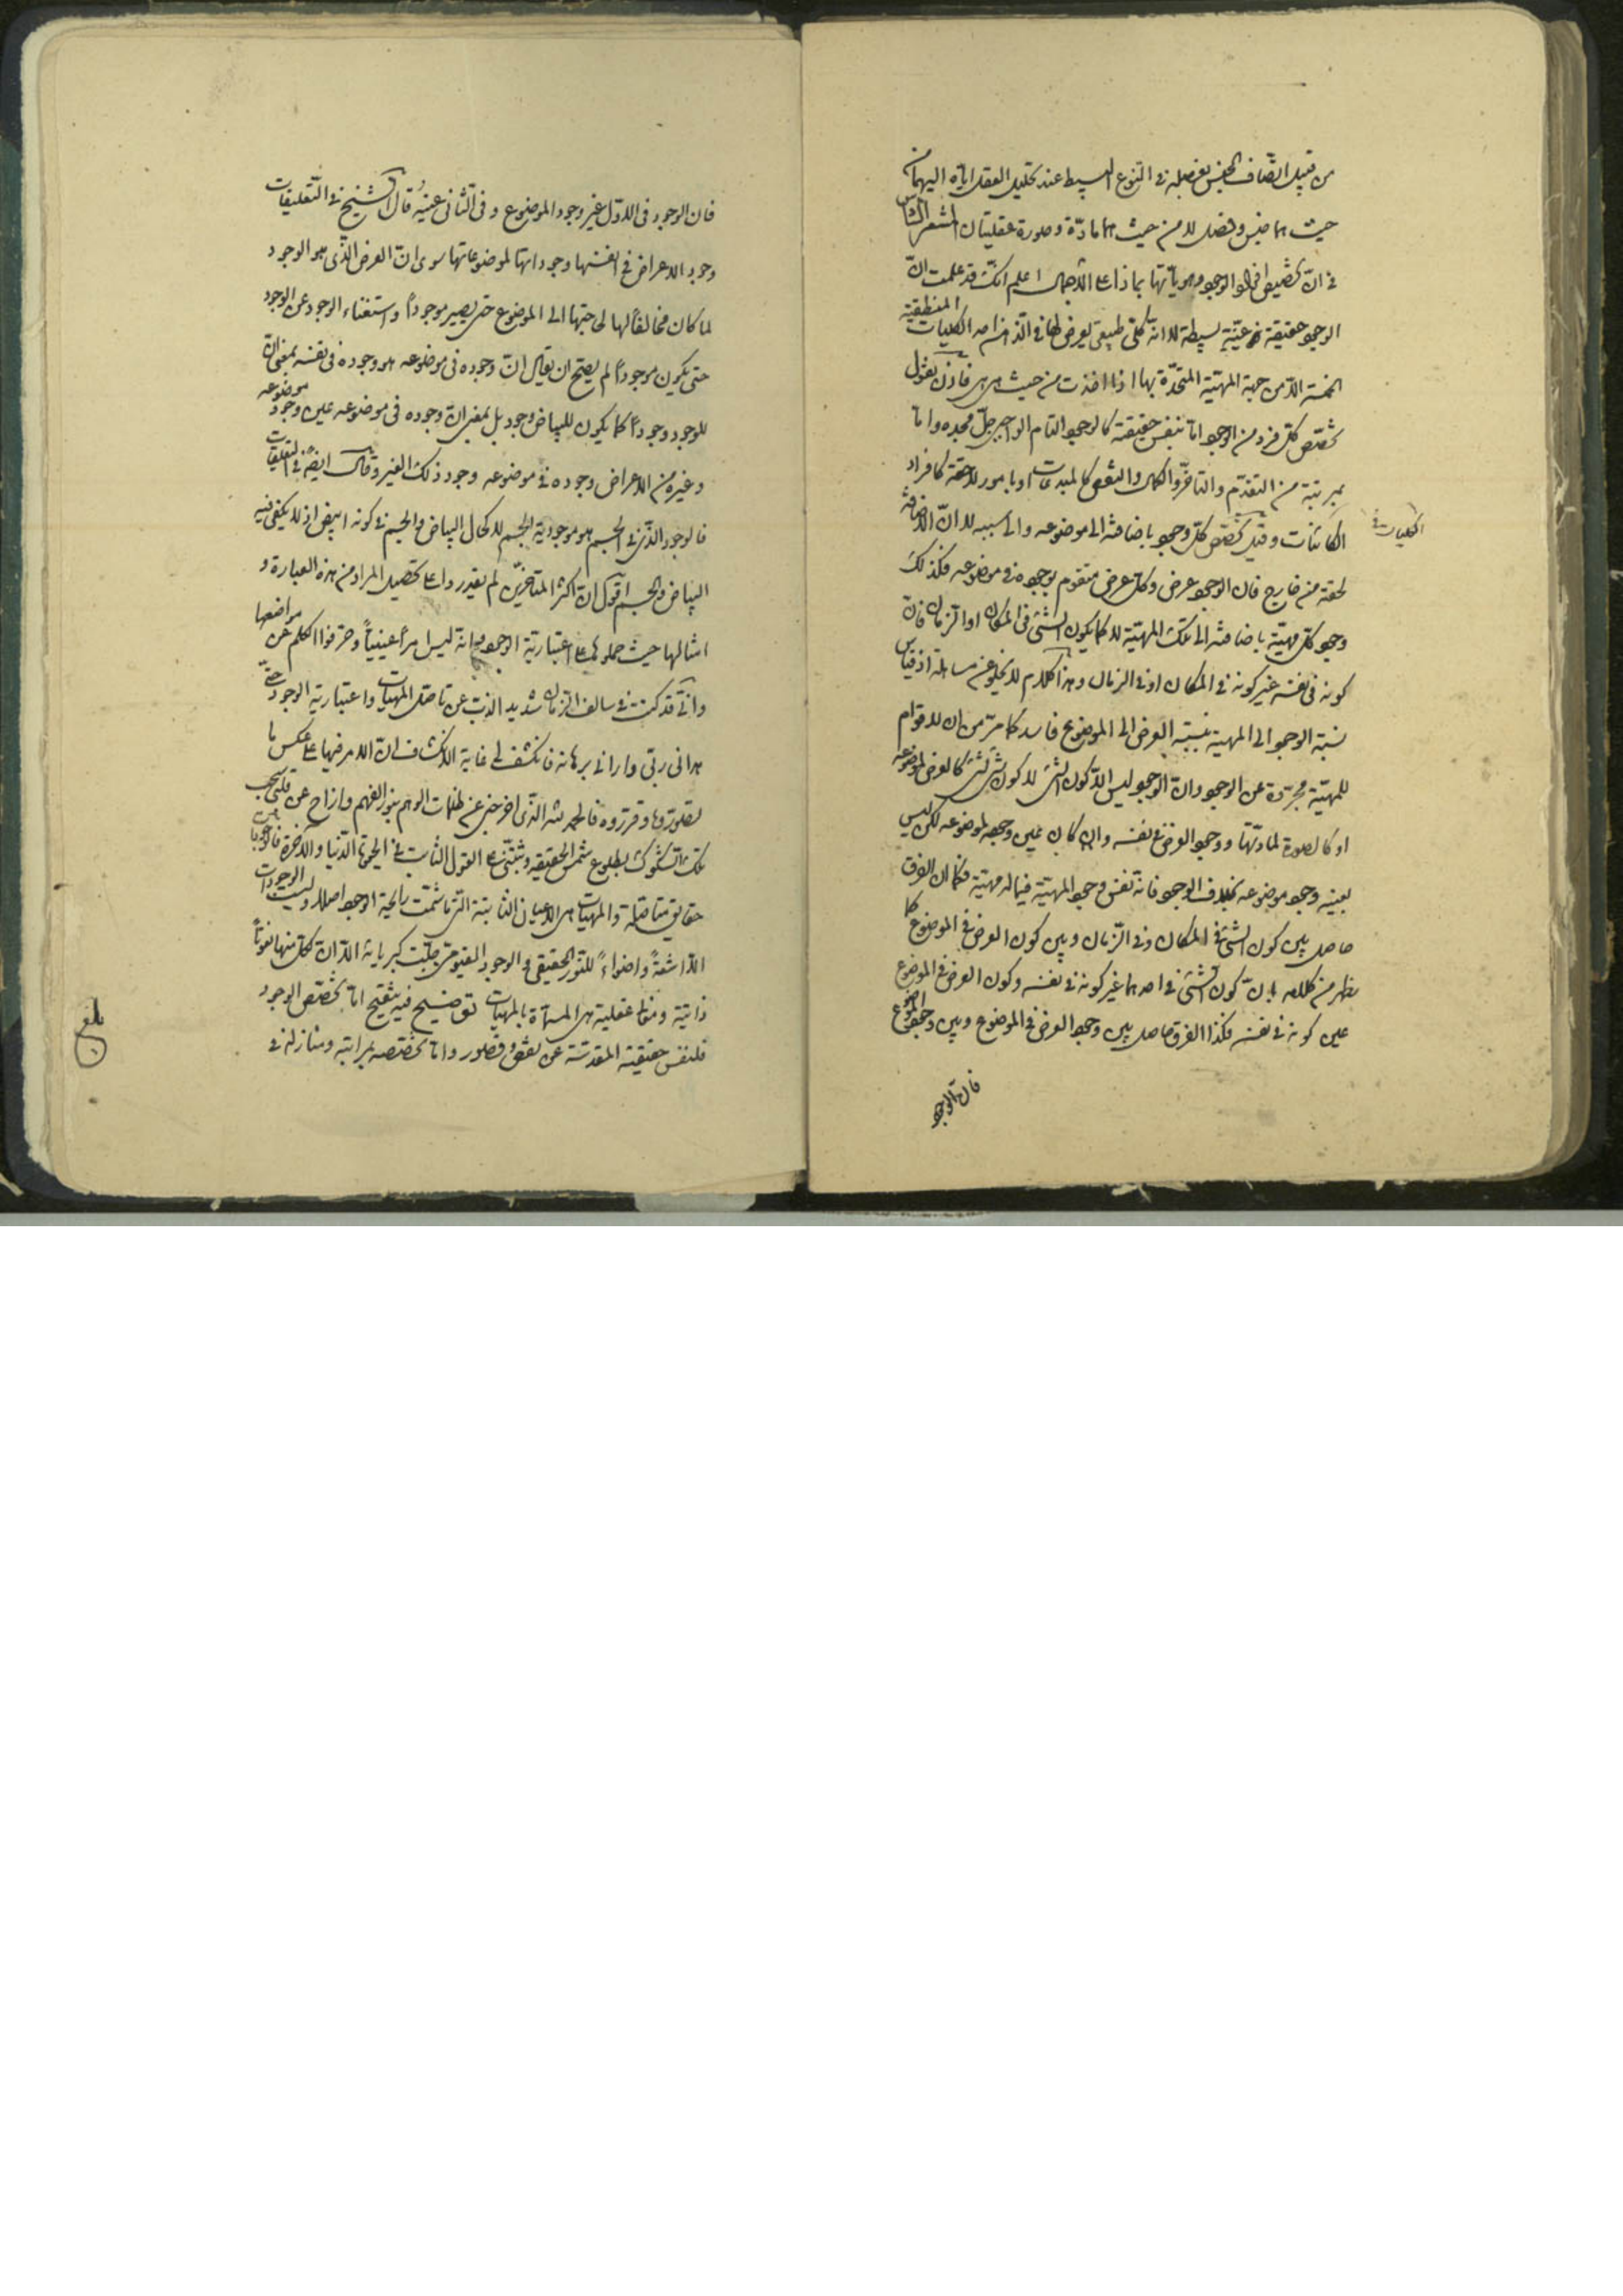 من قبيل اتصاف الجنس بفصله في النوع البسيط عند تحليل العقل اياه اليهما من
حيث هما جنس وفصل لا من حيث هما مادّة وصورة عقليتان المشعر السادس
في انّ تخصيص افراد الوجود وهوياتها بماذا على الاجمال اعلم انّك قد علمت انّ
الوجود حقيقة عينيّة بسيطة لا انّه كلّي طبيعي يعرض لها في الذهن احد الكليات المنطقية
الخمسة الّا من جهة المهيّة المتحدّة بها اذا اخذت من حيث هي هي فاذن نقول
تخصّص كلّ فرد من الوجود اما بنفس حقيقته كالوجود التام الواجبي جلّ مجده واما
بمرتبة من التقدّم والتاخّر والكمال والنقص كالمبدعات او بامور لاحقة كافراد
الكائنات وقيل تخصّص كلّ وجود باضافته الى موضوعه والى سببه لا انّ الاضافة
لحقته من خارج فان الوجود عرض وكلّ عرض متقوم بوجوده في موضوعه فكذلك
وجود كلّ مهيّة باضافته الى تلك المهيّة لا كما يكون الشئ في المكان او الزمان فانّ
كونه في نفسه غير كونه في المكان او في الزمان وهذا الكلام لا يخلو عن مساهلة اذ قياس
نسبة الوجود الى المهية بنسبة العرض الى الموضوع فاسد كما مرّ من ان لا قوام
للمهيّة مجرّدة عن الوجود وان الوجود ليس الّا كون الشئ لا كون شئ لشئ كالعرض لموضوعه
او كالصورة لمادّتها ووجود العرض في نفسه وان كان عين وجوده لموضوعه لكن ليس
بعينه وجود موضوعه بخلاف الوجود فانه نفس وجود المهيّة فيما له مهيّة فكما ان الفرق
حاصل بين كون الشئ في المكان وفي الزّمان وبين كون العرض في الموضوع كما
يظهر من كلامه بانّ كون الشئ في احدهما غير كونه في نفسه وكون العرض في الموضوع
عين كونه في نفسه فكذا الفرق حاصل بين وجود العرض في الموضوع وبين وجود الموضوع
فان الوجود
فان الوجود في الاوّل غير وجود الموضوع وفي الثاني عينه قال الشيخ في التّعليقات
وجود الاعراض في انفسها وجوداتها لموضوعاتها سوى انّ العرض الّذي هو الوجود
لما كان مخالفاً لها لحاجتها الى الموضوع حتى يصير موجوداً واستغناء الوجود عن الوجود
حتى يكون موجوداً لم يصح ان يقال انّ وجوده في موضوعه هو وجوده في نفسه بمعنى انّ
للوجود وجوداً كما يكون للبياض وجود بل بمعنى انّ وجوده في موضوعه عين وجود موضوعه
وغيره من الاعراض وجوده في موضوعه وجود ذلك الغير وقال ايضاً في التعليقات
فالوجود الذي في الجسم هو موجودية الجسم لا كحال البياض والجسم في كونه ابيض اذ لا يكفي فيه
البياض والجسم اقول انّ اكثر المتاخّرين لم يقدروا على تحصيل المراد من هذه العبارة و
امثالها حيث حملوها على اعتبارية الوجود وانّه ليس امراً عينياً وحرّفوا الكلم عن مواضعها
وانّي قد كنت في سالف الزمان شديد الذبّ عن تاصّل المهيات واعتبارية الوجود حتّى
هداني ربّي واراني برهانه فانكشف لي غاية الانكشاف انّ الامر فيها على عكس ما
تصوّروها وقرّروه فالحمد لله الّذي اخرجني عن ظلمات الوهم بنور الفهم وازاح عن قلبي سحب
تلك الشكوك بطلوع شمس الحقيقة وثبّتني على القول الثابت في الحيوة الدّنيا والآخرة فالوجودات
حقايق متاصّلة والمهيات هي الاعيان الثابتة التي ما شمّت رايحة الوجود اصلا وليست الوجودات
الّا اشعةً واضواءً للنّور الحقيقي والوجود القيومي جلّت كبرياؤه الّا انّ لكل منها نعوتاً
ذاتية ومعاني عقلية هي المسمّاة بالمهيات توضيح فيه تنقيح اما تخصّص الوجود
فلنفس حقيقته المقدّسة عن نقص وقصور واما تخصّصه بمراتبه ومنازله في
بلغ